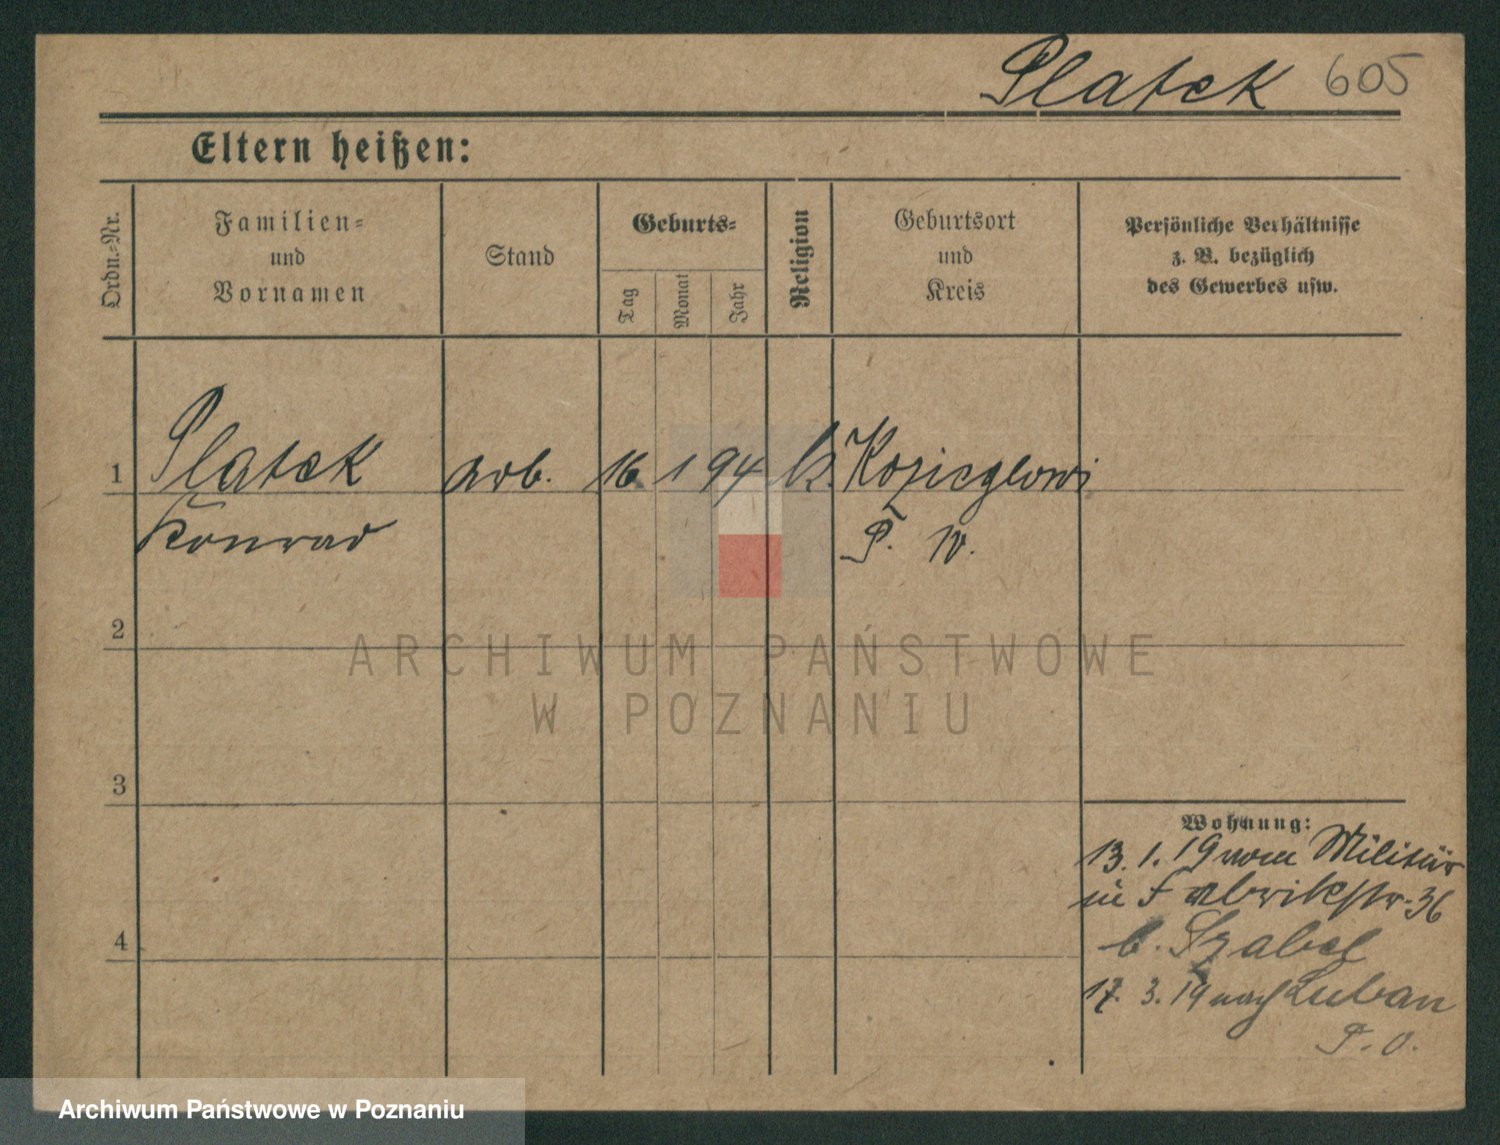 Platek 605
Eltern heißen:
Ordn.-Nr.
Familien-
und
Vornamen
Stand
Geburts-
Tag
Monat
Jahr
Religion
Geburtsort
und
Kreis
Persönliche Verhältnisse
z. B. bezüglich
des Gewerbes usw.
1 Platek arb. 16 1 94 k. Koziegłowi
Konrad P. W.
2
3
4
Wohnung:
13. 1. 19 vom Militär
in Fabrikstr. 36
b. Szabel
17. 3. 19 nach Luban
P. O.
ARCHIWUM PAŃSTWOWE
W POZNANIU
Archiwum Państwowe w Poznaniu